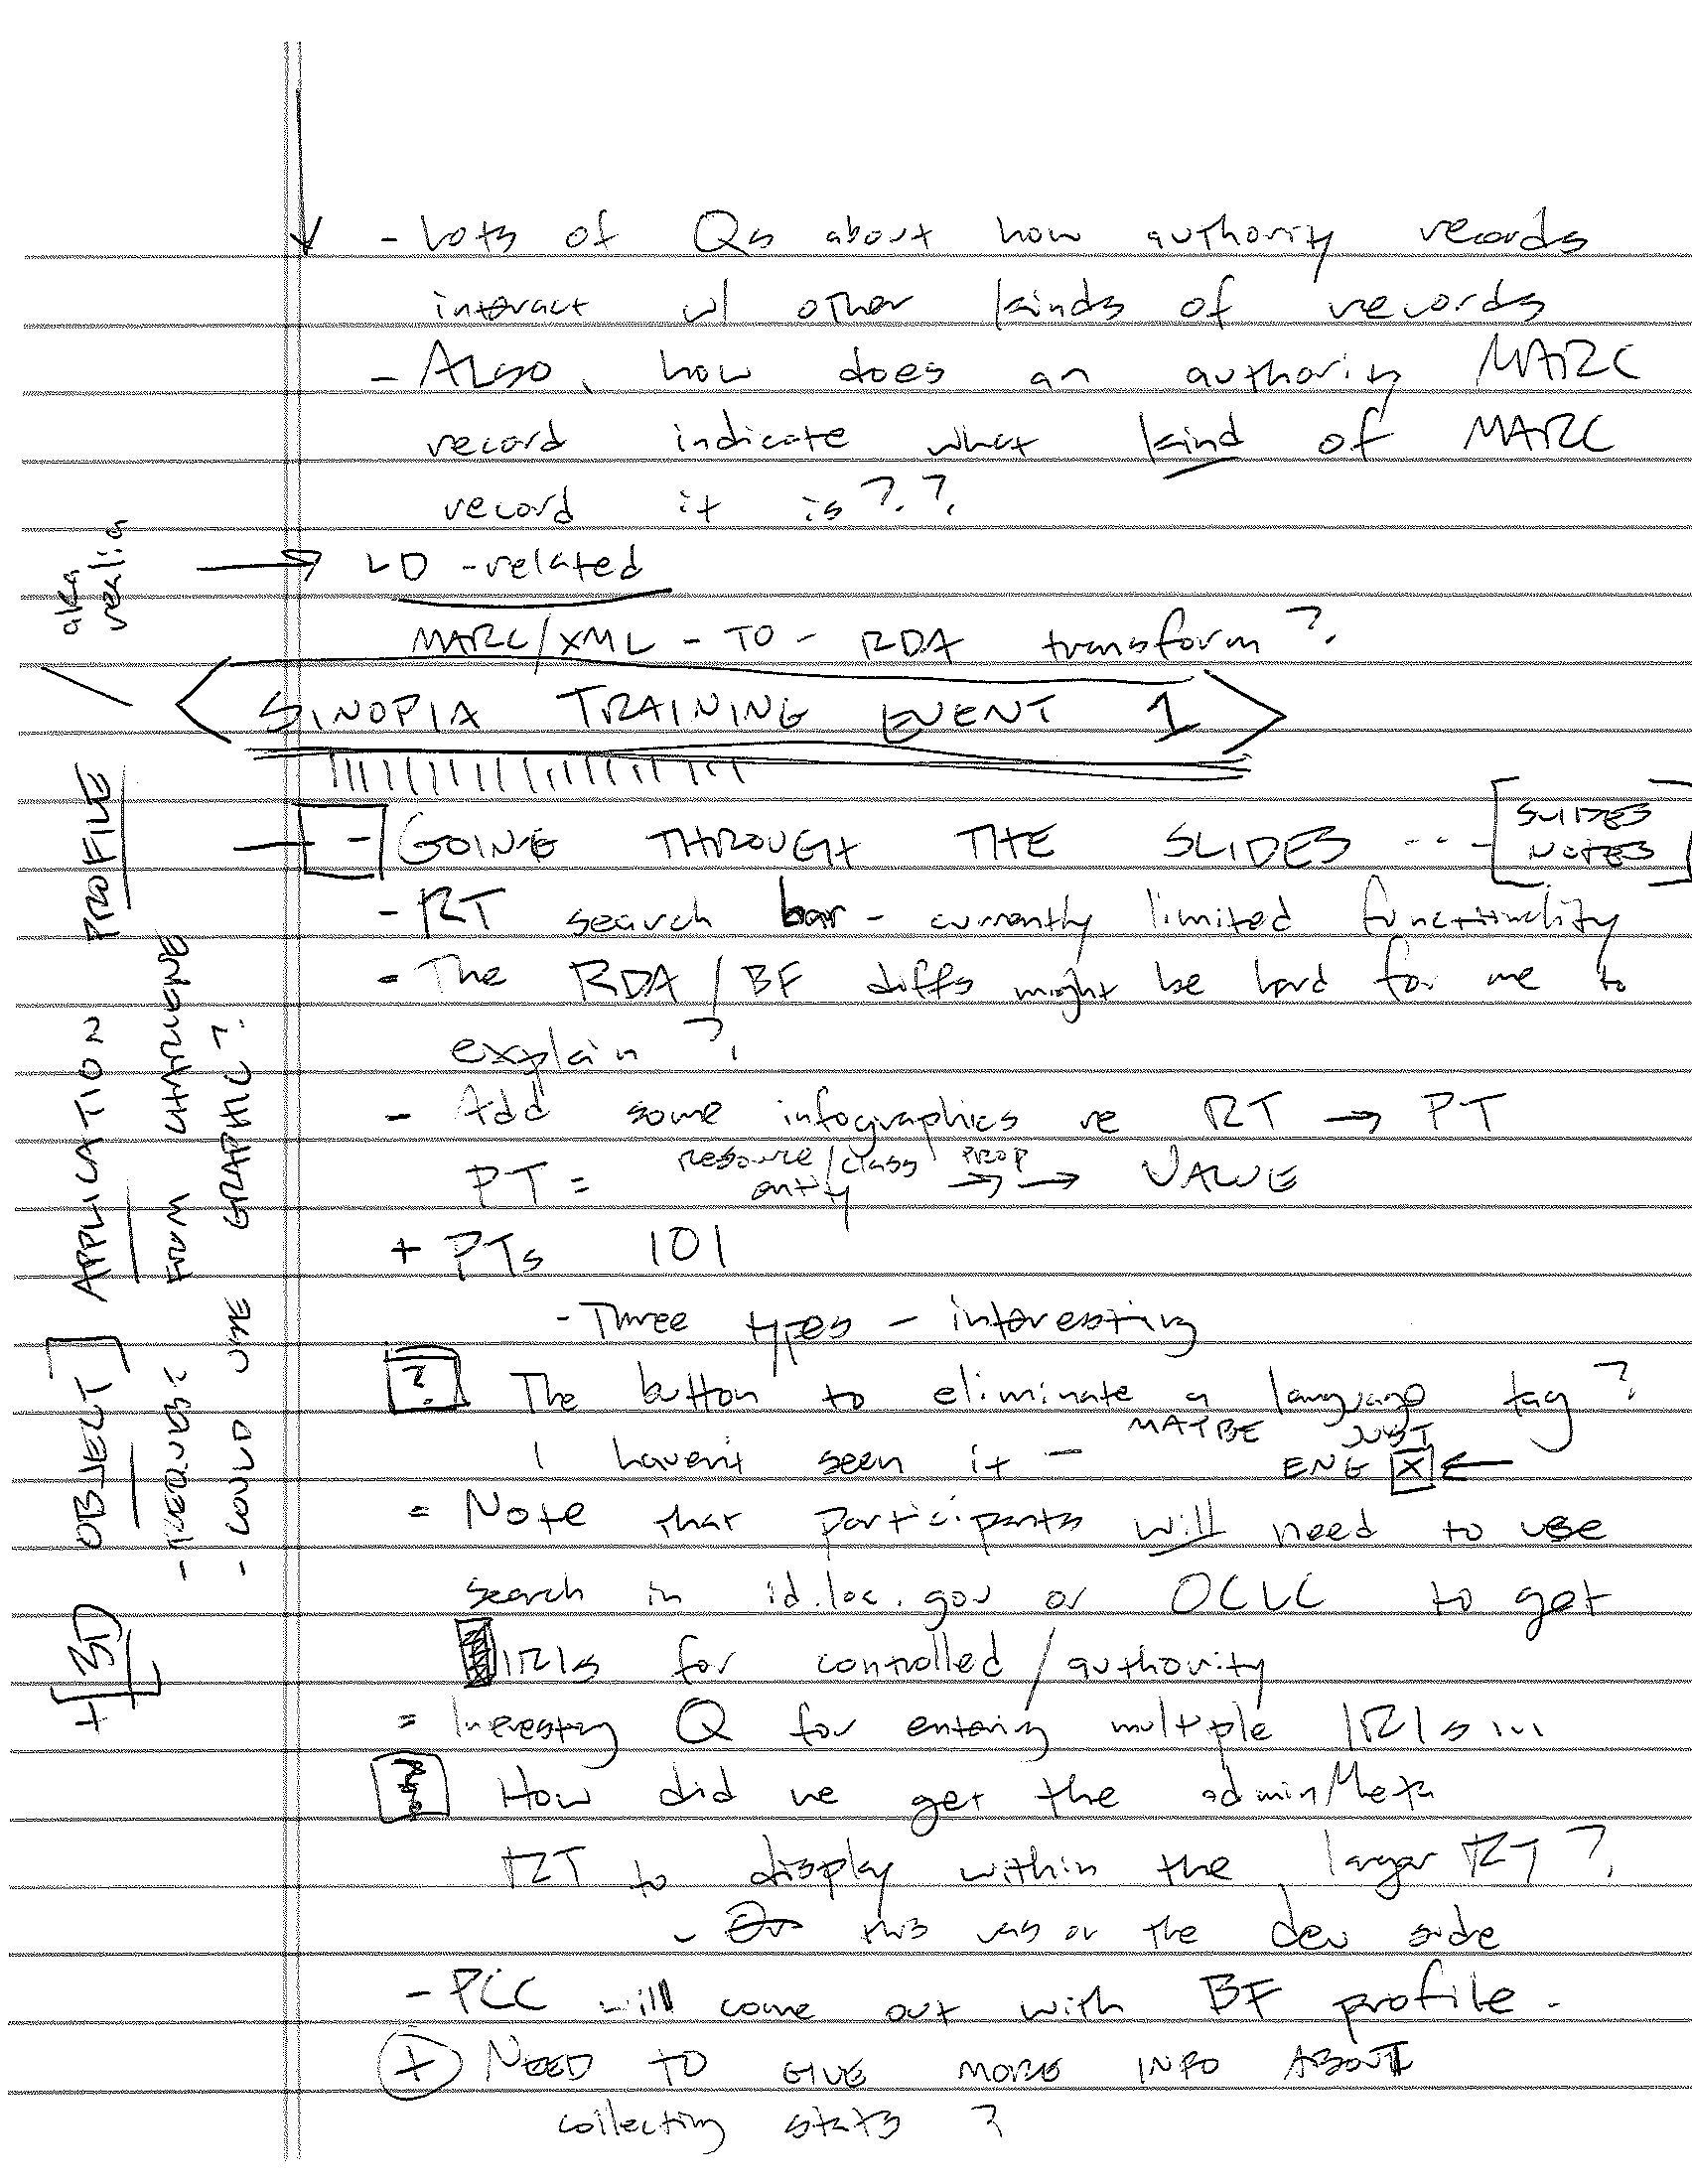 - Lots of Qs about how authority records
interact w/ other kinds of records
- Also, how does an authority MARC
record indicate what kind of MARC
record it is??
→ LD-related
MARC/XML-TO-RDA transform?
SINOPIA TRAINING EVENT 1
- GOING THROUGH THE SLIDES ... - [SLIDES
NOTES]
- RT search bar - currently limited functionality
- The RDA/BF diffs might be hard for me to
explain?
- Add some infographics re RT → PT
PT = resource/class PROP → → VALUE
entity
+ PTs 101
- Three types - interesting
? The button to eliminate a language tag?
I haven't seen it - MAYBE JUST
ENG [X] ←
= Note that participants will need to use
search in id.loc.gov or OCLC to get
IRIs for controlled/authority
= Interesting Q for entering multiple IRIs ...
? How did we get the adminMeta
RT to display within the larger RT?
- this was on the dev side
- PCC will come out with BF profile.
+ NEED TO GIVE MORE INFO ABOUT
collecting stats?
+ [3D OBJECT] APPLICATION PROFILE / aka realia
- REQUEST FROM CHARLENE
- COULD USE GRAPHIC?